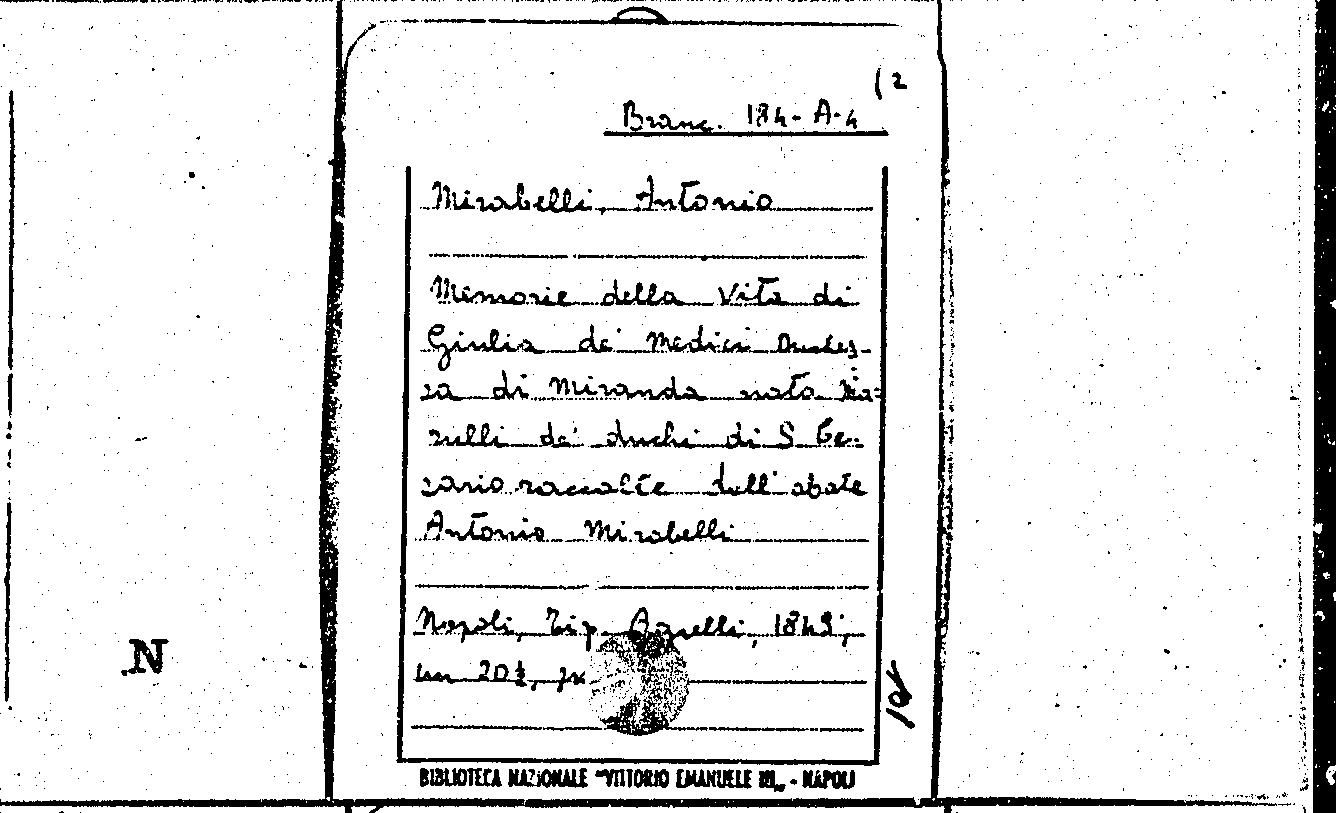 (2
Branc. 184-A-4
Mirabelli, Antonio
Memorie della Vita di
Giulia de' Medici Duches-
sa di Miranda nata Ma=
rulli de' duchi di S Ce-
sario raccolte dall' abate
Antonio Mirabelli
Napoli, Tip. Agrelli,
cm 20½,
N
BIBLIOTECA NAZIONALE "VITTORIO EMANUELE III„ - NAPOLI